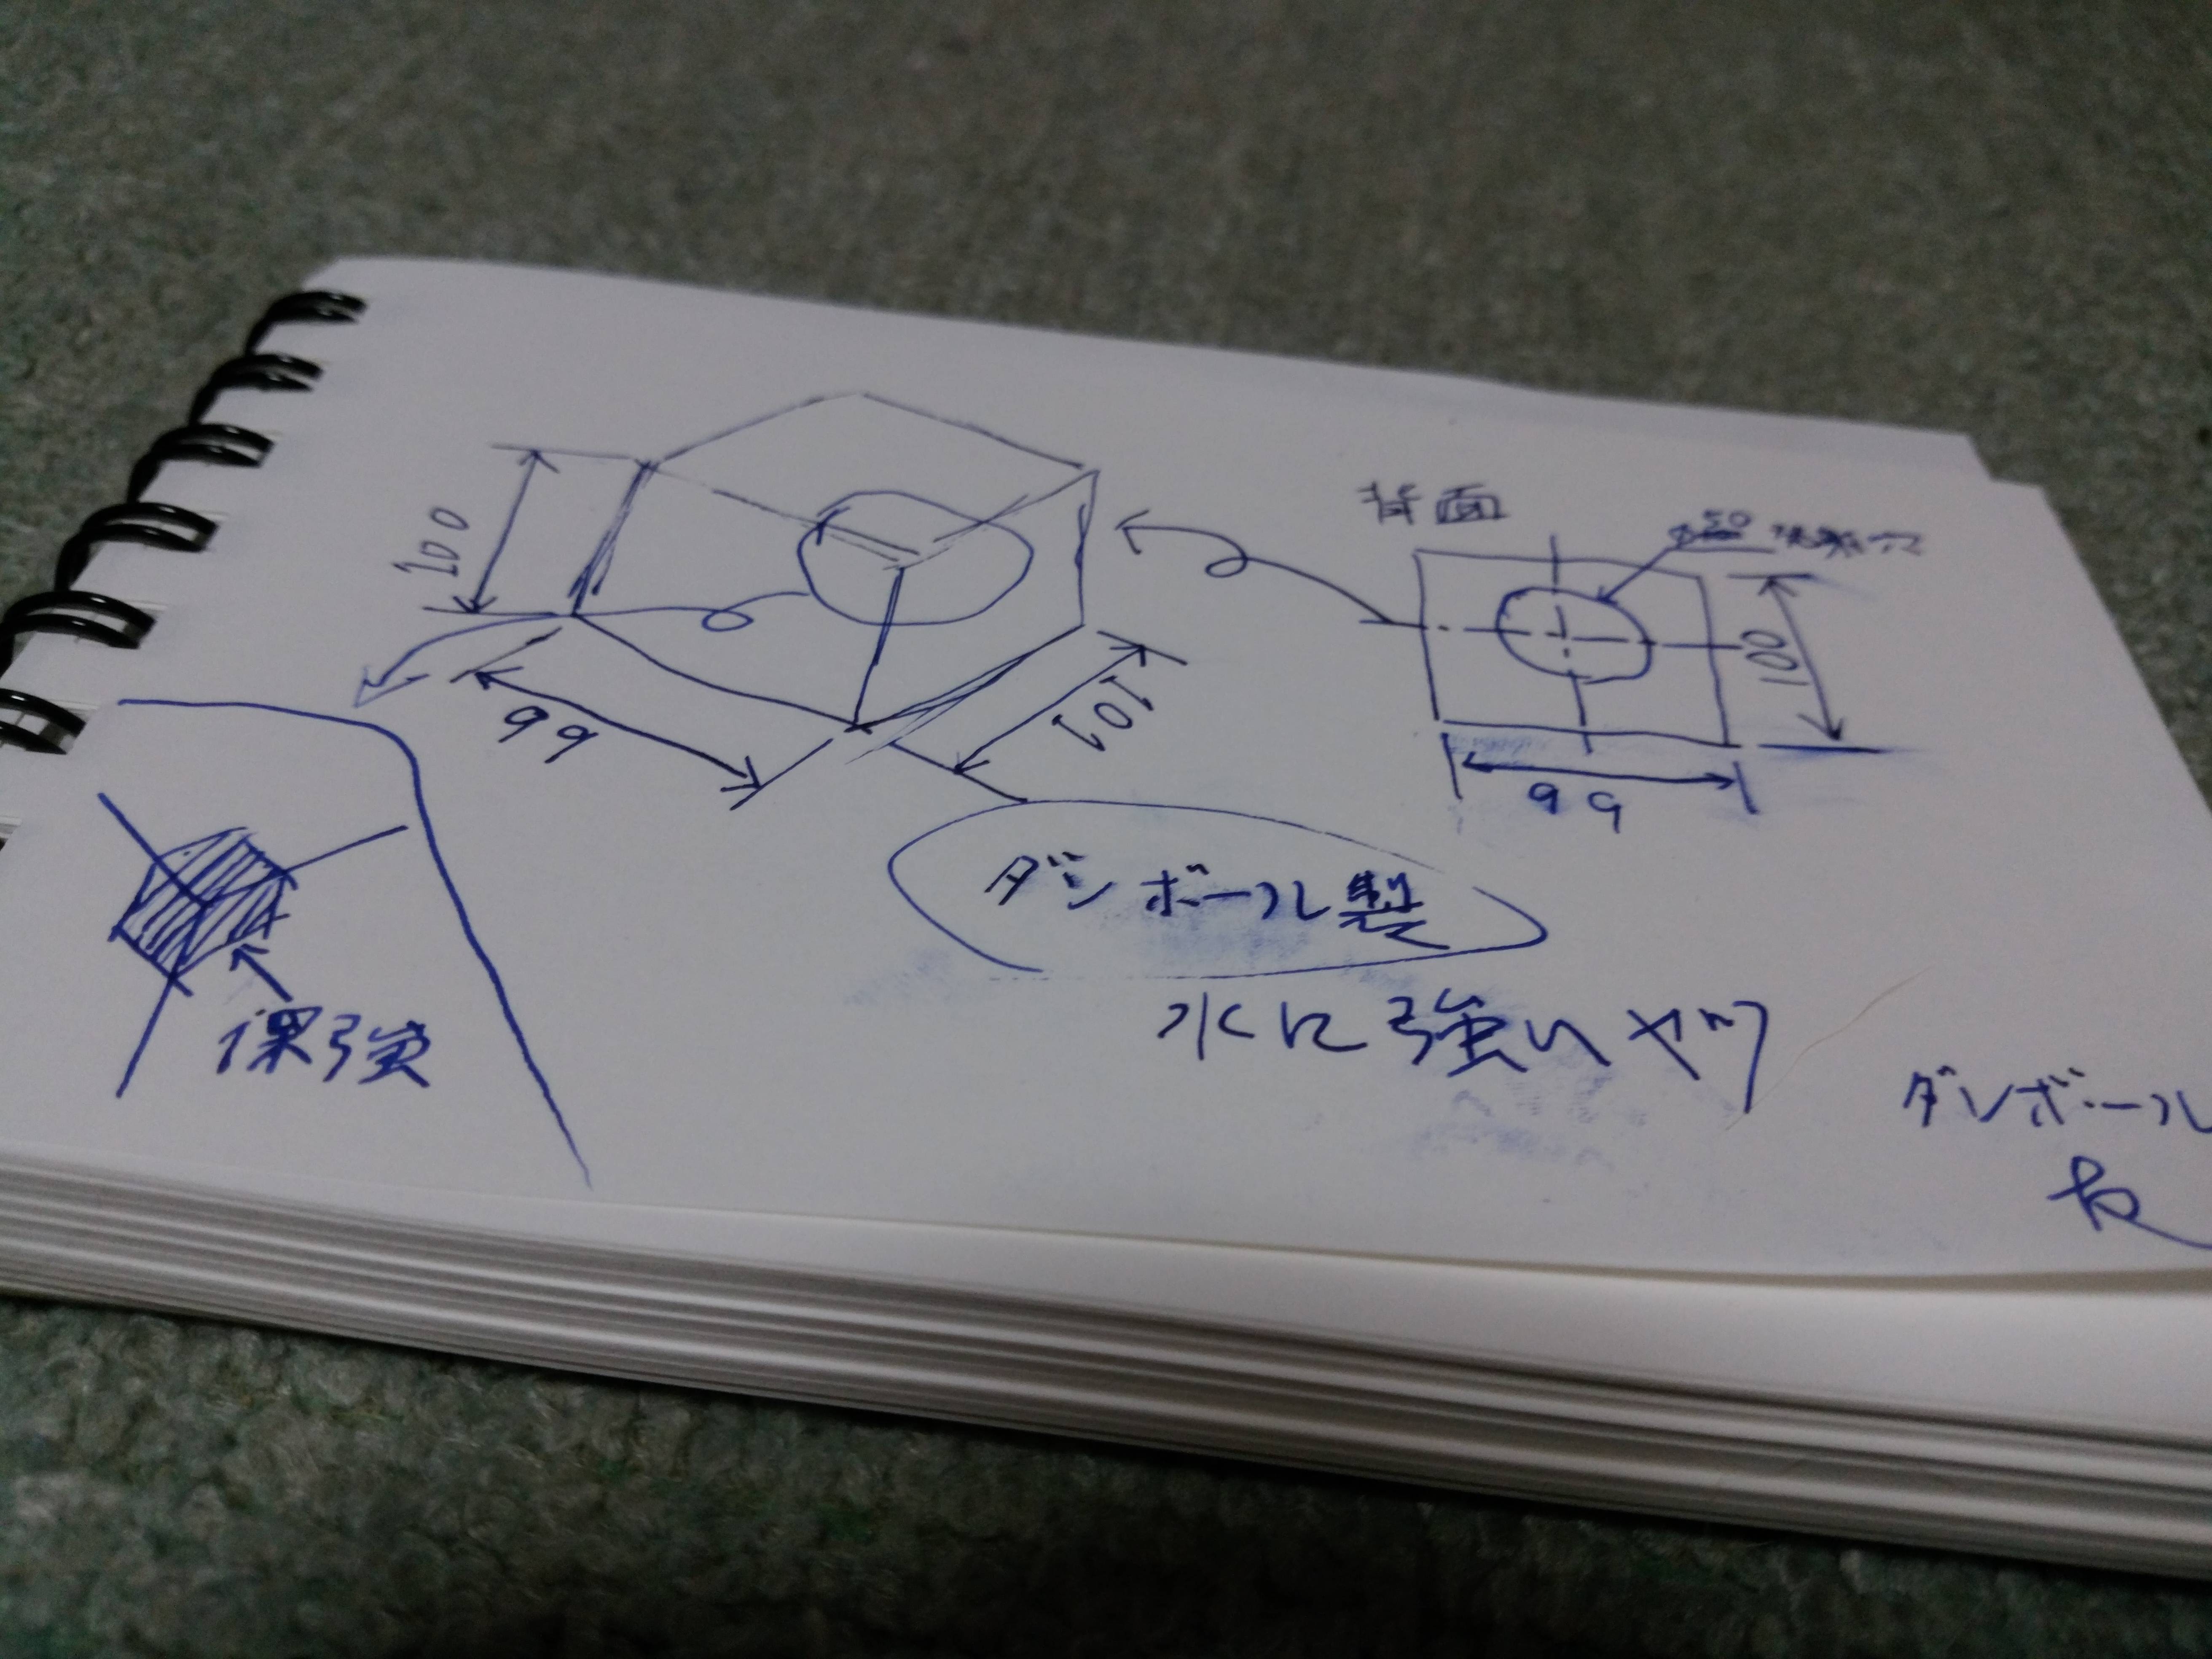 100
99
101
背面
φ50
100
99
ダンボール製
水に強いヤツ
保強
ダンボール